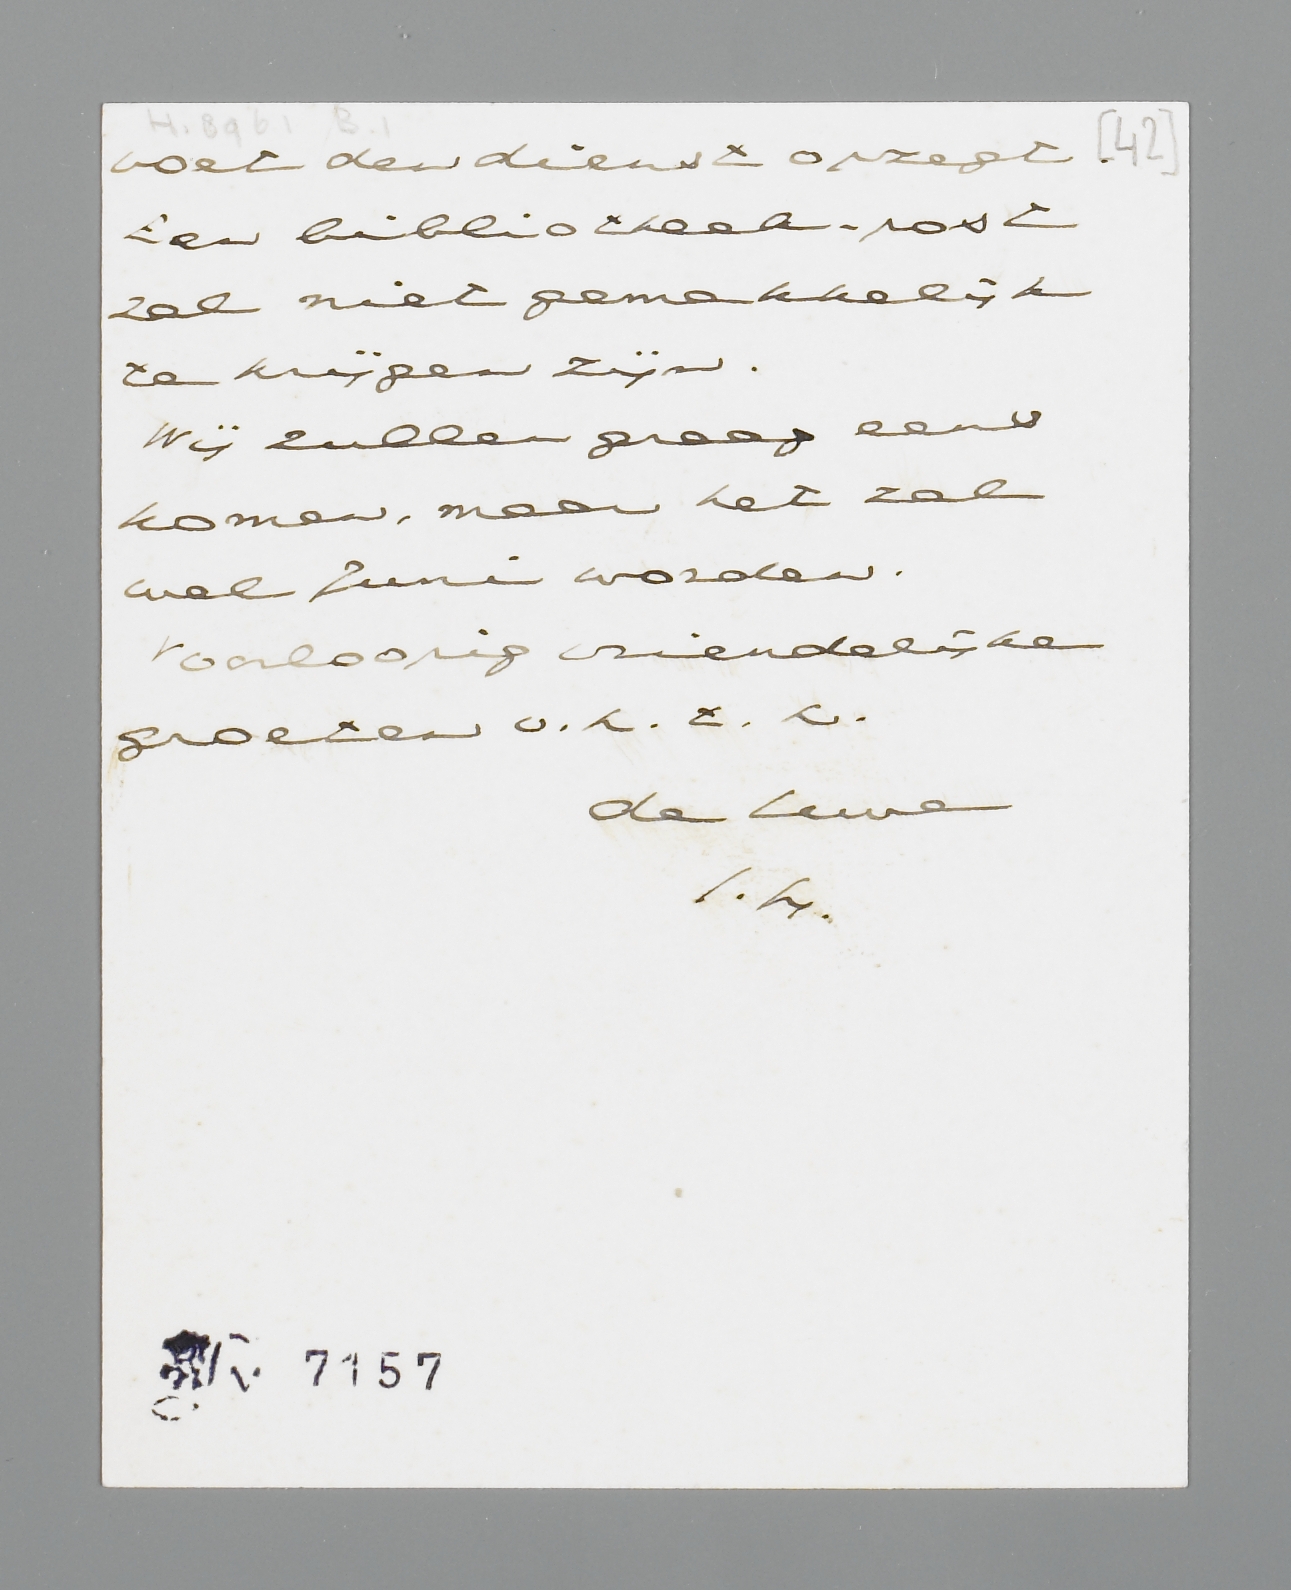 H. 8961 B.1
[42]
voet den dienst opzegt.
Een bibliotheek-post
zal niet gemakkelijk
te krijgen zijn.
Wij zullen graag eens
komen, maar het zal
wel Juni worden.
Voorloopig vriendelijke
groeten v. h. t. h.
de Uwe
7157